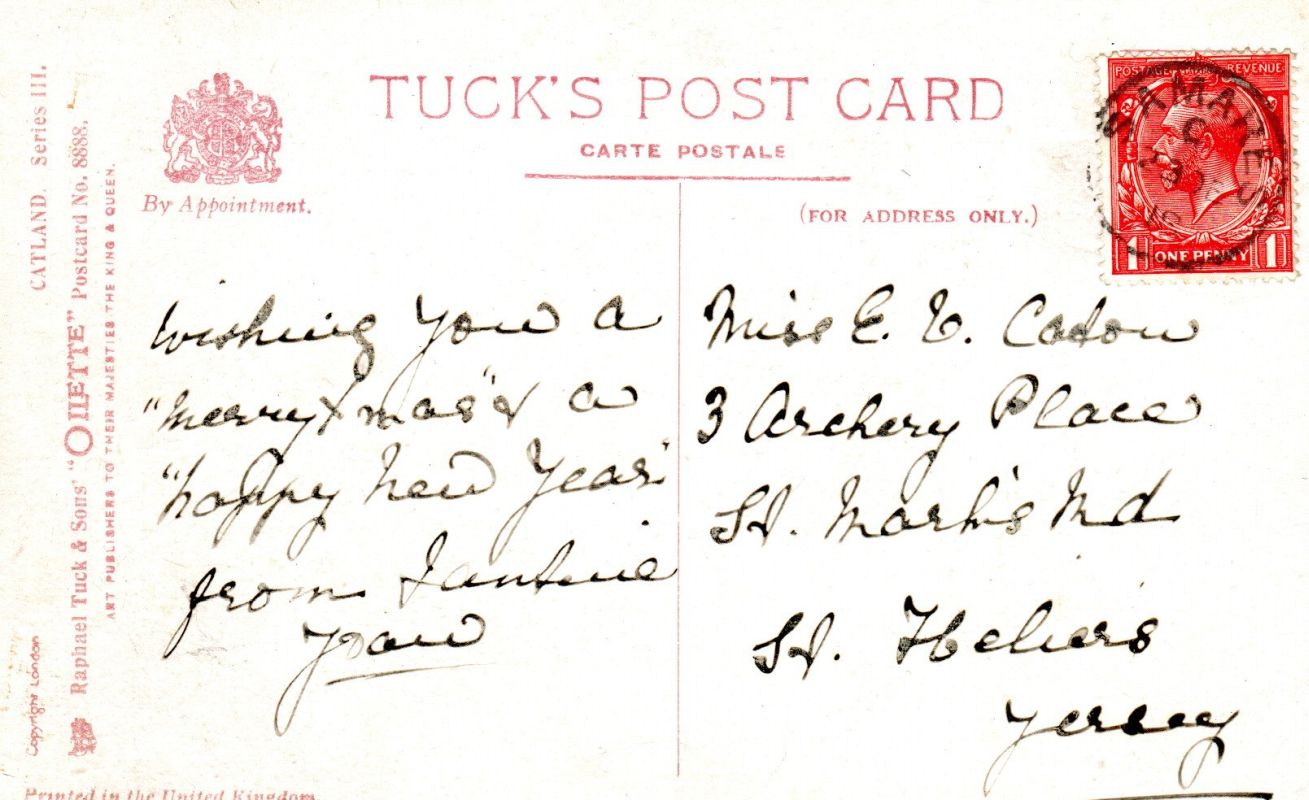 TUCK'S POST CARD
CARTE POSTALE
By Appointment.
(FOR ADDRESS ONLY.)
POSTAGE REVENUE
1 ONE PENNY 1
CATLAND. Series III.
Raphael Tuck & Sons' "OILETTE" Postcard No. 8888.
ART PUBLISHERS TO THEIR MAJESTIES THE KING & QUEEN.
Copyright London
Wishing you a
"Merry Xmas" & a
"happy New Year"
from
Miss E. V. Caton
3 Archery Place
St. Mark's Rd
St. Heliers
Jersey
Printed in the United Kingdom.